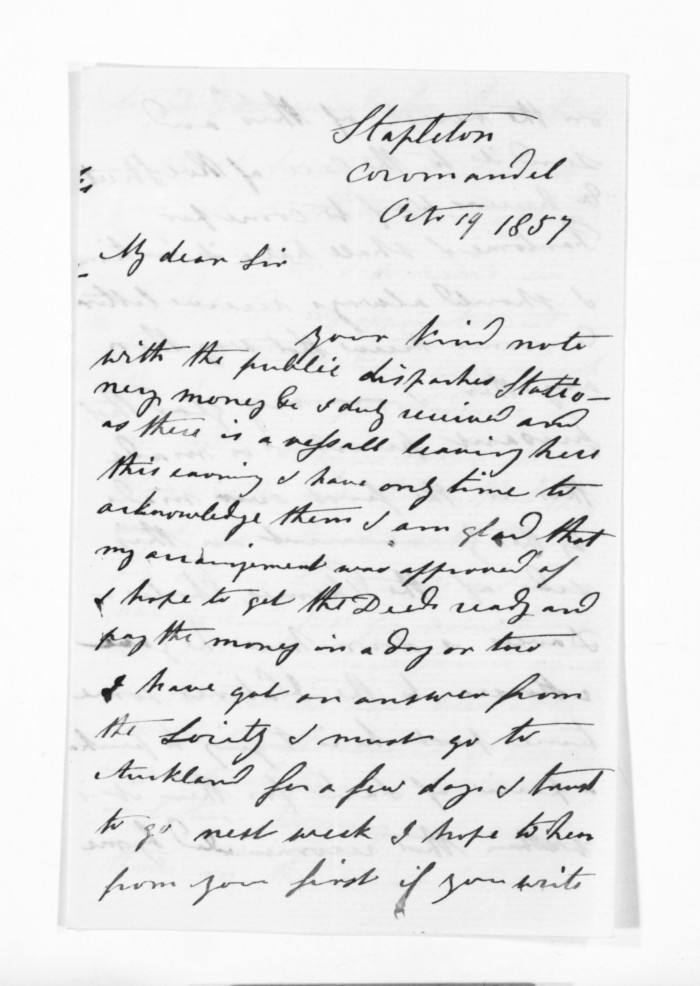 Stapleton
Coromandel
Octr 19 1857
My dear Sir
your kind note
with the public dispatches Statio-
nery money &c I duly received and
as there is a vessall leaving here
this evening I have only time to
acknowledge them I am glad that
my arrangement was approved of
I hope to get the Deeds ready and
pay the money in a day or two
I have got an answer from
the Society I must go to
Auckland for a few days I trust
to go next week I hope to hear
from you first if you write